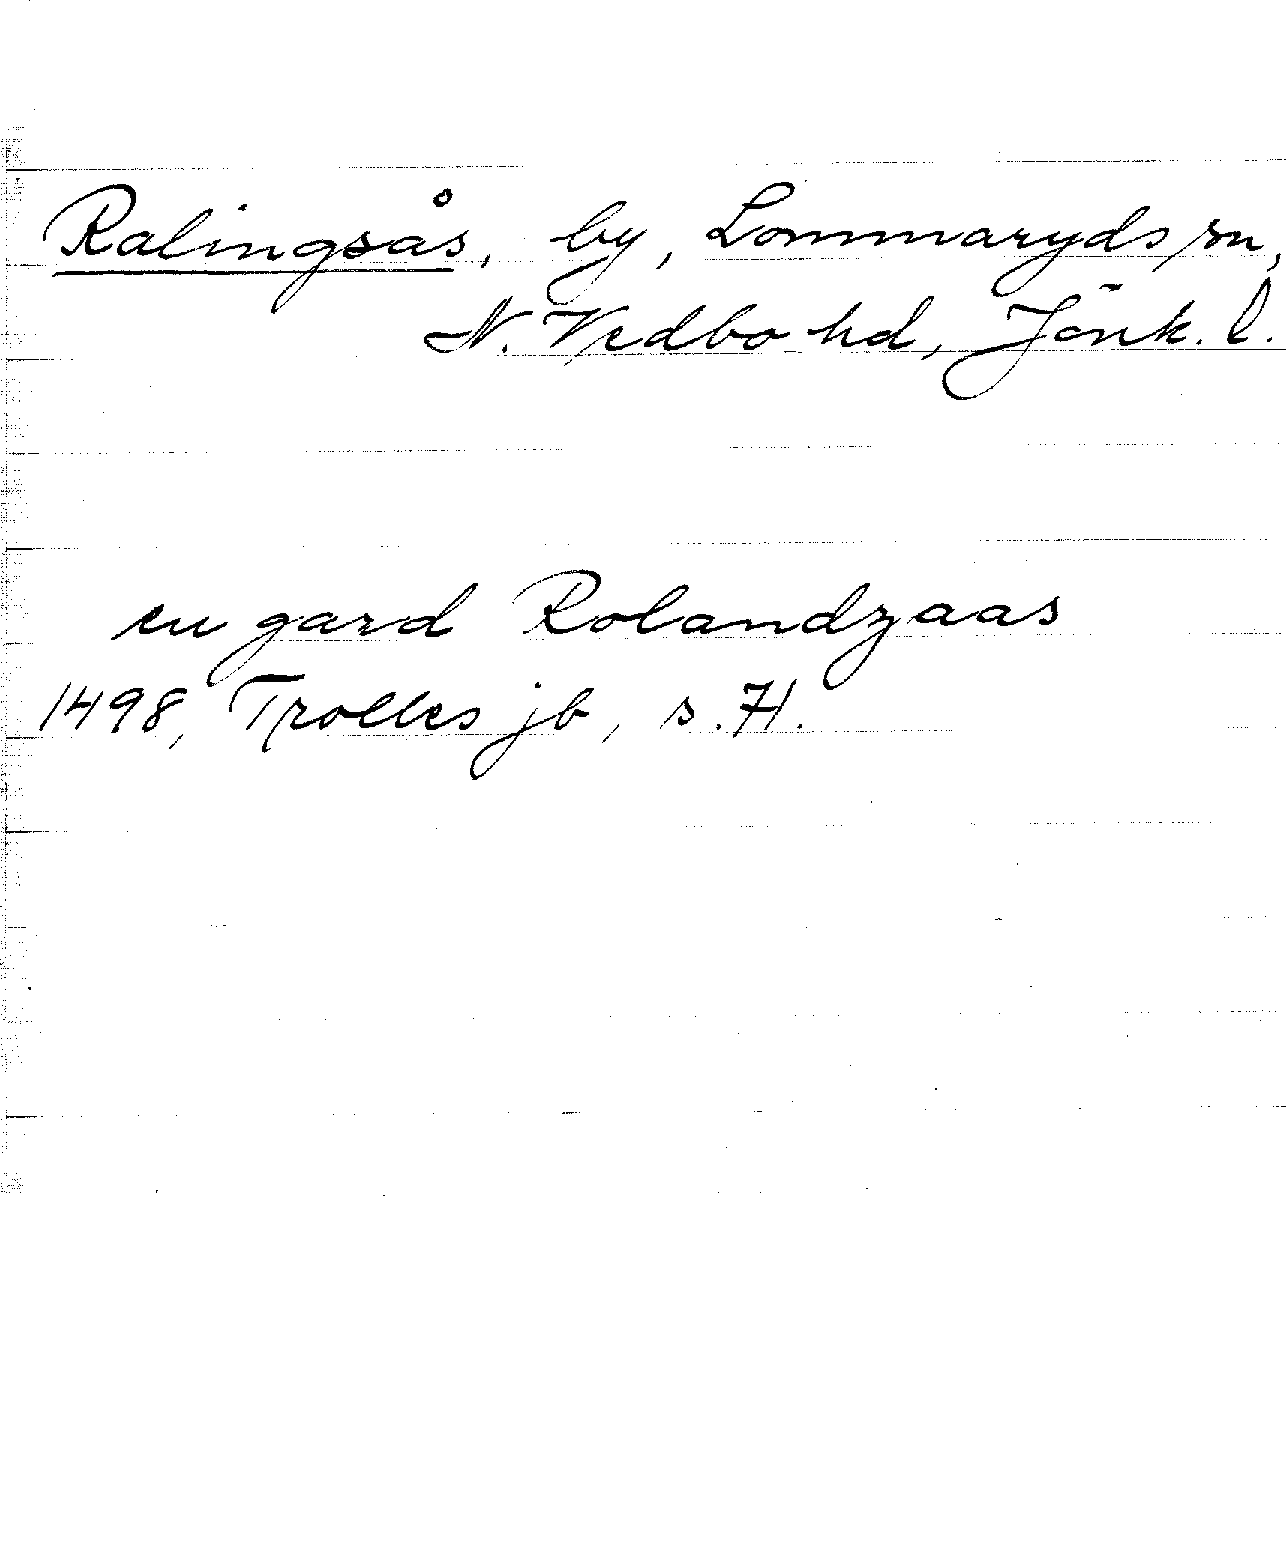 Ralingsås, by, Lommaryds sn,
N. Vedbo hd, Jönk. l.
en gard Rolandzaas
1498, Trolles jb, s. 71.